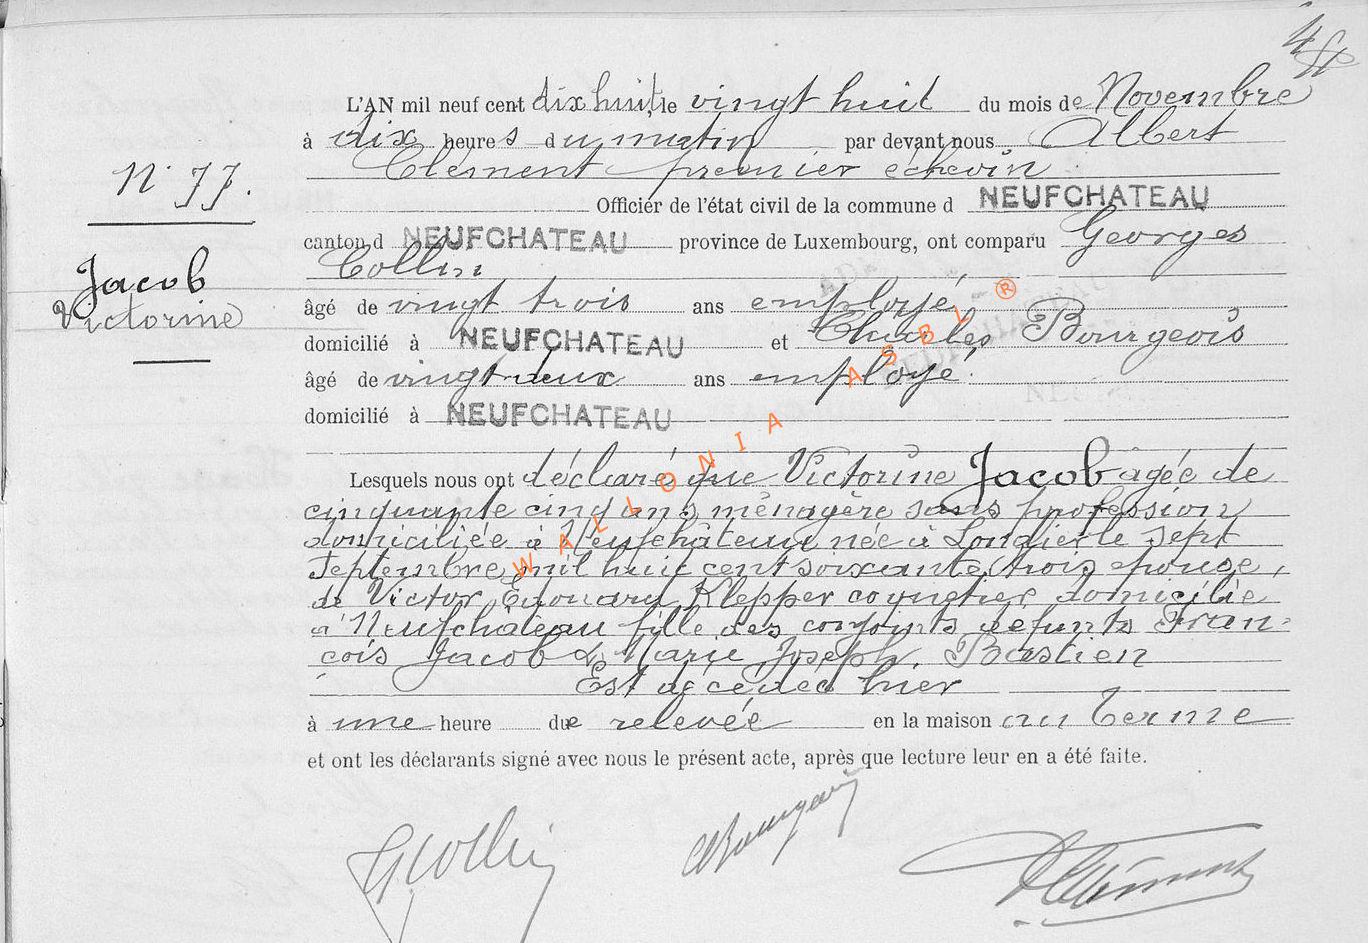 L'AN mil neuf cent dix huit, le vingt huit du mois de Novembre
à dix heures du matin par devant nous Albert
Clément premier échevin
N° 77.
Officier de l'état civil de la commune d NEUFCHATEAU
canton d NEUFCHATEAU province de Luxembourg, ont comparu Georges
Collin
Jacob
Victorine
âgé de vingt trois ans employé
domicilié à NEUFCHATEAU et Charles Bourgeois
âgé de vingt deux ans employé
domicilié à NEUFCHATEAU
WALLONIA ASBL - ®
Lesquels nous ont déclaré que Victorine Jacob âgée de
cinquante cinq ans ménagère sans profession
domiciliée à Neufchâteau née à Longlier le sept
Septembre mil huit cent soixante trois épouse
de Victor Edouard Klepper domicilié
à Neufchateau fille des conjoints défunts Fran-
çois Jacob & Marie Joseph Bastien
Est décédée hier
à une heure de relevée en la maison au Terme
et ont les déclarants signé avec nous le présent acte, après que lecture leur en a été faite.
G Collin
Bourgeois
Clément